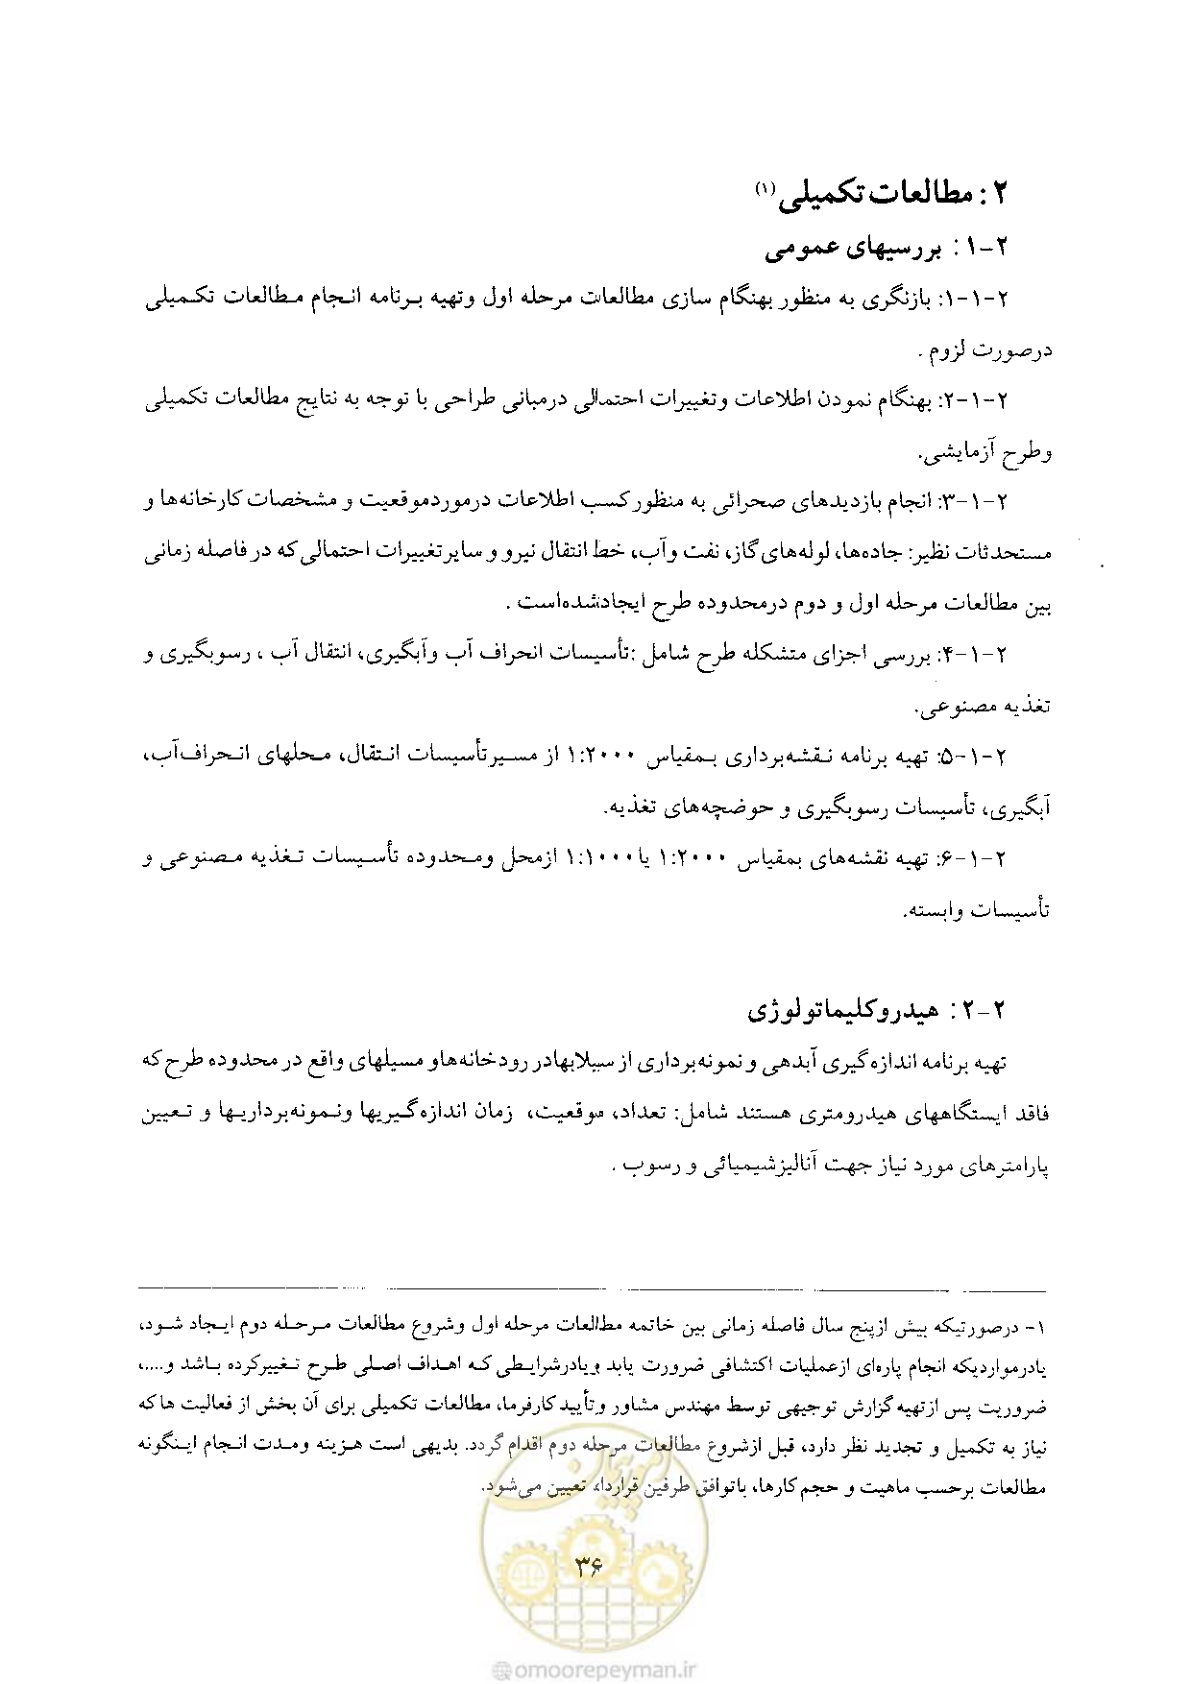 ۲ : مطالعات تکمیلی (۱)
۲-۱ : بررسیهای عمومی
۲-۱-۱: بازنگری به منظور بهنگام سازی مطالعات مرحله اول وتهیه برنامه انجام مطالعات تکمیلی
درصورت لزوم .
۲-۱-۲: بهنگام نمودن اطلاعات وتغییرات احتمالی درمبانی طراحی با توجه به نتایج مطالعات تکمیلی
وطرح آزمایشی.
۲-۱-۳: انجام بازدیدهای صحرائی به منظورکسب اطلاعات درموردموقعیت و مشخصات کارخانه‌ها و
مستحدثات نظیر: جاده‌ها، لوله‌های گاز، نفت وآب، خط انتقال نیرو و سایرتغییرات احتمالی که در فاصله زمانی
بین مطالعات مرحله اول و دوم درمحدوده طرح ایجادشده‌است .
۲-۱-۴: بررسی اجزای متشکله طرح شامل :تأسیسات انحراف آب وآبگیری، انتقال آب ، رسوبگیری و
تغذیه مصنوعی.
۲-۱-۵: تهیه برنامه نقشه‌برداری بمقیاس ۱:۲۰۰۰ از مسیرتأسیسات انتقال، محلهای انحراف‌آب،
آبگیری، تأسیسات رسوبگیری و حوضچه‌های تغذیه.
۲-۱-۶: تهیه نقشه‌های بمقیاس ۱:۲۰۰۰ یا ۱:۱۰۰۰ ازمحل ومحدوده تأسیسات تغذیه مصنوعی و
تأسیسات وابسته.
۲-۲ : هیدروکلیماتولوژی
تهیه برنامه اندازه‌گیری آبدهی و نمونه‌برداری از سیلابهادر رودخانه‌هاو مسیلهای واقع در محدوده طرح که
فاقد ایستگاههای هیدرومتری هستند شامل: تعداد، موقعیت، زمان اندازه‌گیریها ونمونه‌برداریها و تعیین
پارامترهای مورد نیاز جهت آنالیزشیمیائی و رسوب .
۱- درصورتیکه بیش ازپنج سال فاصله زمانی بین خاتمه مطالعات مرحله اول وشروع مطالعات مرحله دوم ایجاد شود،
یادرمواردیکه انجام پاره‌ای ازعملیات اکتشافی ضرورت یابد ویادرشرایطی که اهداف اصلی طرح تغییرکرده باشد و....،
ضروریت پس ازتهیه گزارش توجیهی توسط مهندس مشاور وتأیید کارفرما، مطالعات تکمیلی برای آن بخش از فعالیت هاکه
نیاز به تکمیل و تجدید نظر دارد، قبل ازشروع مطالعات مرحله دوم اقدام گردد. بدیهی است هزینه ومدت انجام اینگونه
مطالعات برحسب ماهیت و حجم کارها، باتوافق طرفین قرارداد تعیین می‌شود.
۳۶
امور پیمان
@omoorepeyman.ir